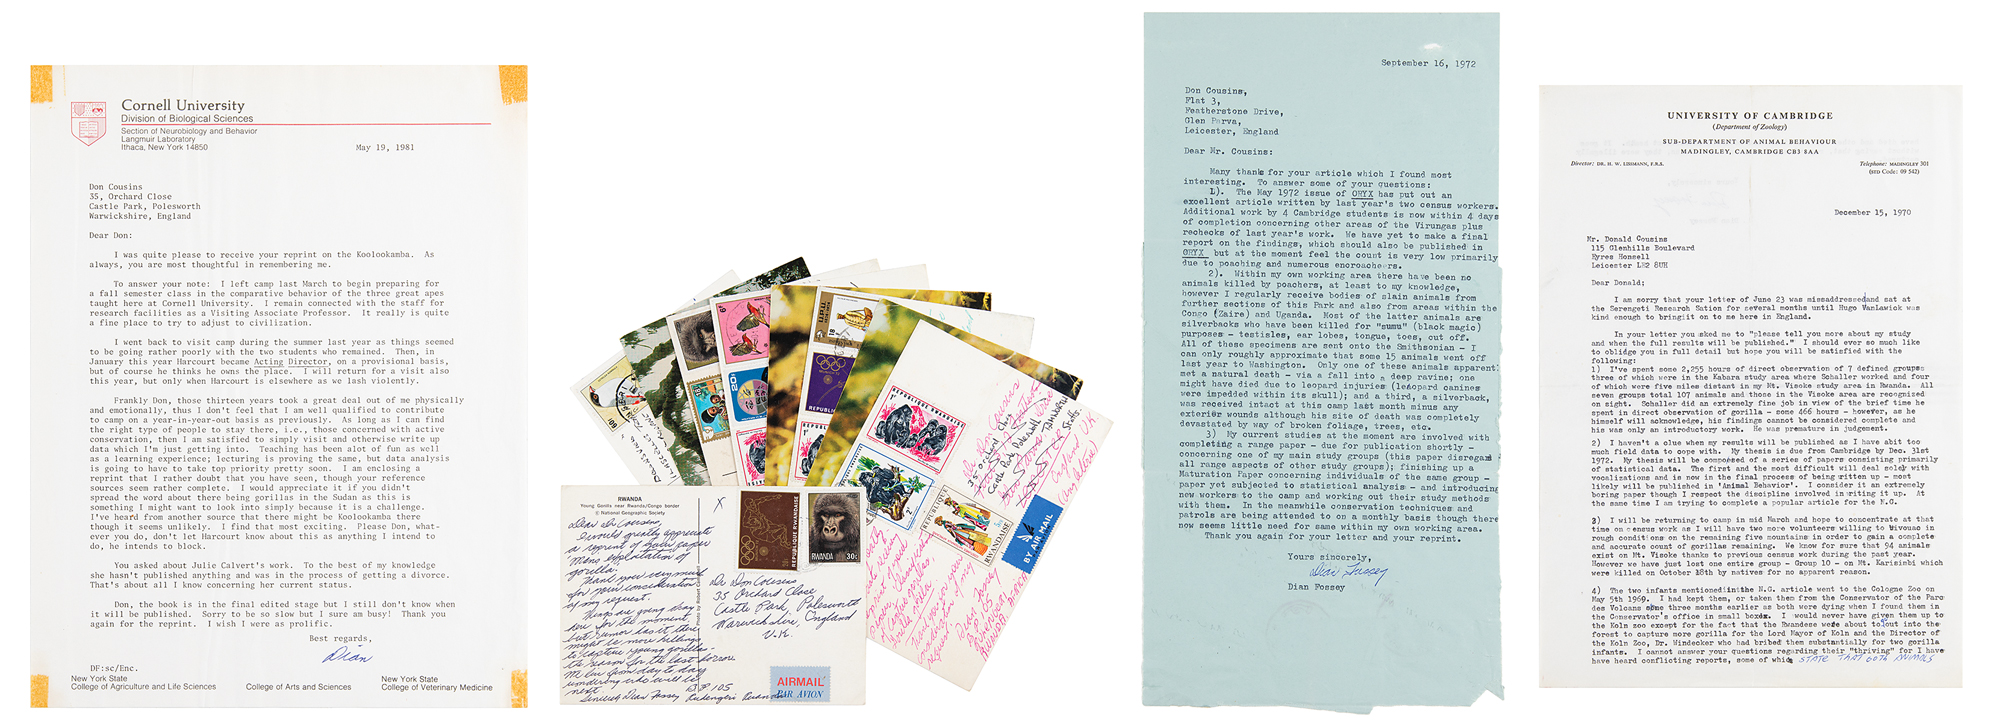 Cornell University
Division of Biological Sciences
Section of Neurobiology and Behavior
Langmuir Laboratory
Ithaca, New York 14850
May 19, 1981
Don Cousins
35, Orchard Close
Castle Park, Polesworth
Warwickshire, England
Dear Don:
I was quite please to receive your reprint on the Koolookamba. As
always, you are most thoughtful in remembering me.
To answer your note: I left camp last March to begin preparing for
a fall semester class in the comparative behavior of the three great apes
taught here at Cornell University. I remain connected with the staff for
research facilities as a Visiting Associate Professor. It really is quite
a fine place to try to adjust to civilization.
I went back to visit camp during the summer last year as things seemed
to be going rather poorly with the two students who remained. Then, in
January this year Harcourt became Acting Director, on a provisional basis,
but of course he thinks he owns the place. I will return for a visit also
this year, but only when Harcourt is elsewhere as we lash violently.
Frankly Don, those thirteen years took a great deal out of me physically
and emotionally, thus I don't feel that I am well qualified to contribute
to camp on a year-in-year-out basis as previously. As long as I can find
the right type of people to stay there, i.e., those concerned with active
conservation, then I am satisfied to simply visit and otherwise write up
data which I'm just getting into. Teaching has been alot of fun as well
as a learning experience; lecturing is proving the same, but data analysis
is going to have to take top priority pretty soon. I am enclosing a
reprint that I rather doubt that you have seen, though your reference
sources seem rather complete. I would appreciate it if you didn't
spread the word about there being gorillas in the Sudan as this is
something I might want to look into simply because it is a challenge.
I've heard from another source that there might be Koolookamba there
though it seems unlikely. I find that most exciting. Please Don, what-
ever you do, don't let Harcourt know about this as anything I intend to
do, he intends to block.
You asked about Julie Calvert's work. To the best of my knowledge
she hasn't published anything and was in the process of getting a divorce.
That's about all I know concerning her current status.
Don, the book is in the final edited stage but I still don't know when
it will be published. Sorry to be so slow but I sure am busy! Thank you
again for the reprint. I wish I were as prolific.
Best regards,
Dian
DF:sc/Enc.
New York State
College of Agriculture and Life Sciences
College of Arts and Sciences
New York State
College of Veterinary Medicine
RWANDA
Young Gorilla near Rwanda/Congo border
© National Geographic Society
Dear Mr Cousins,
I would greatly appreciate
a reprint of your paper
Mans exploitation of
gorilla.
Thank you very much
for your consideration
of my request.
Things are going okay
here for the moment,
but rumor has it there
might be more killings
to capture young gorillas.
the reason for the last horror
M live from day to day
wondering who will be
next.
Sincerely Dian Fossey
B.P. 105
Ruhengeri Rwanda
X
REPUBLIQUE RWANDAISE
RWANDA
30c
Mr Don Cousins
35 Orchard Close
Castle Park, Polesworth
Warwickshire, England
U.K.
AIRMAIL
PAR AVION
REPUBLIQUE RWANDAISE
BY AIR MAIL
September 16, 1972
Don Cousins,
Flat 3,
Featherstone Drive,
Glen Parva,
Leicester, England
Dear Mr. Cousins:
Many thanks for your article which I found most
interesting. To answer some of your questions:
1). The May 1972 issue of ORYX has put out an
excellent article written by last year's two census workers.
Additional work by 4 Cambridge students is now within 4 days
of completion concerning other areas of the Virungas plus
rechecks of last year's work. We have yet to make a final
report on the findings, which should also be published in
ORYX but at the moment feel the count is very low primarily
due to poaching and numerous encroachers.
2). Within my own working area there have been no
animals killed by poachers, at least to my knowledge,
however I regularly receive bodies of slain animals from
further sections of this Park and also from areas within the
Congo (Zaire) and Uganda. Most of the latter animals are
silverbacks who have been killed for "sumu" (black magic)
purposes - testisles, ear lobes, tongue, toes, cut off.
All of these specimens are sent onto the Smithsonian - I
can only roughly approximate that some 15 animals went off
last year to Washington. Only one of these animals apparent
met a natural death - via a fall into a deep ravine; one
might have died due to leopard injuries (leopard canines
were impedded within its skull); and a third, a silverback,
was received intact at this camp last month minus any
exterior wounds although his site of death was completely
devastated by way of broken foliage, trees, etc.
3) My current studies at the moment are involved with
completing a range paper - due for publication shortly -
concerning one of my main study groups (this paper disregard
all range aspects of other study groups); finishing up a
Maturation Paper concerning individuals of the same group -
paper yet subjected to statistical analysis - and introducing
new workers to the camp and working out their study methods
with them. In the meanwhile conservation techniques and
patrols are being attended to on a monthly basis though there
now seems little need for same within my own working area.
Thank you again for your letter and your reprint.
Yours sincerely,
Dian Fossey
Dian Fossey
UNIVERSITY OF CAMBRIDGE
(Department of Zoology)
SUB-DEPARTMENT OF ANIMAL BEHAVIOUR
MADINGLEY, CAMBRIDGE CB3 8AA
Director: DR. H. W. LISSMANN, F.R.S.
Telephone: MADINGLEY 301
(STD Code: 09 542)
December 15, 1970
Mr. Donald Cousins
115 Glenhills Boulevard
Eyres Honsell
Leicester LE2 8UH
Dear Donald;
I am sorry that your letter of June 23 was missaddressedand sat at
the Serengeti Research Sation for several months until Hugo VanLawick was
kind enough to bringit on to me here in England.
In your letter you asked me to "please tell you more about my study
and when the full results will be published." I should ever so much like
to oblidge you in full detail but hope you will be satisfied with the
following:
1) I've spent some 2,255 hours of direct observation of 7 defined groups;
three of which were in the Kabara study area where Schaller worked and four
of which were five miles distant in my Mt. Visoke study area in Rwanda. All
seven groups total 107 animals and those in the Visoke area are recognized
on sight. Schaller did an extremely fine job in view of the brief time he
spent in direct observation of gorilla - some 466 hours - however, as he
himself will acknowledge, his findings cannot be considered complete and
his was only an introductory work. He was premature in judgement.
2) I haven't a clue when my results will be published as I have abit too
much field data to cope with. My thesis is due from Cambridge by Dec. 31st
1972. My thesis will be composed of a series of papers consisting primarily
of statistical data. The first and the most difficult will deal solely with
vocalizations and is now in the final process of being written up - most
likely will be published in 'Animal Behavior'. I consider it an extremely
boring paper though I respect the discipline involved in writing it up. At
the same time I am trying to complete a popular article for the N.G.
3) I will be returning to camp in mid March and hope to concentrate at that
time on census work as I will have two more volunteers willing to bivouac in
rough conditions on the remaining five mountains in order to gain a complete
and accurate count of gorillas remaining. We know for sure that 94 animals
exist on Mt. Visoke thanks to previous census work during the past year.
However we have just lost one entire group - Group 10 - on Mt. Karisimbi which
were killed on October 28th by natives for no apparent reason.
4) The two infants mentionedinthe N.G. article went to the Cologne Zoo on
May 5th 1969. I had kept them, or taken them from the Conservator of the Parc
des Volcans some three months earlier as both were dying when I found them in
the Conservator's office in small boxes. I would never have given them up to
the Koln zoo except for the fact that the Rwandese were about to out into the
forest to capture more gorilla for the Lord Mayor of Koln and the Director of
the Koln Zoo, Dr. Windecker who had bribed them substantially for two gorilla
infants. I cannot answer your questions regarding their "thriving" for I have
have heard conflicting reports, some of which STATE THAT BOTH ANIMALS